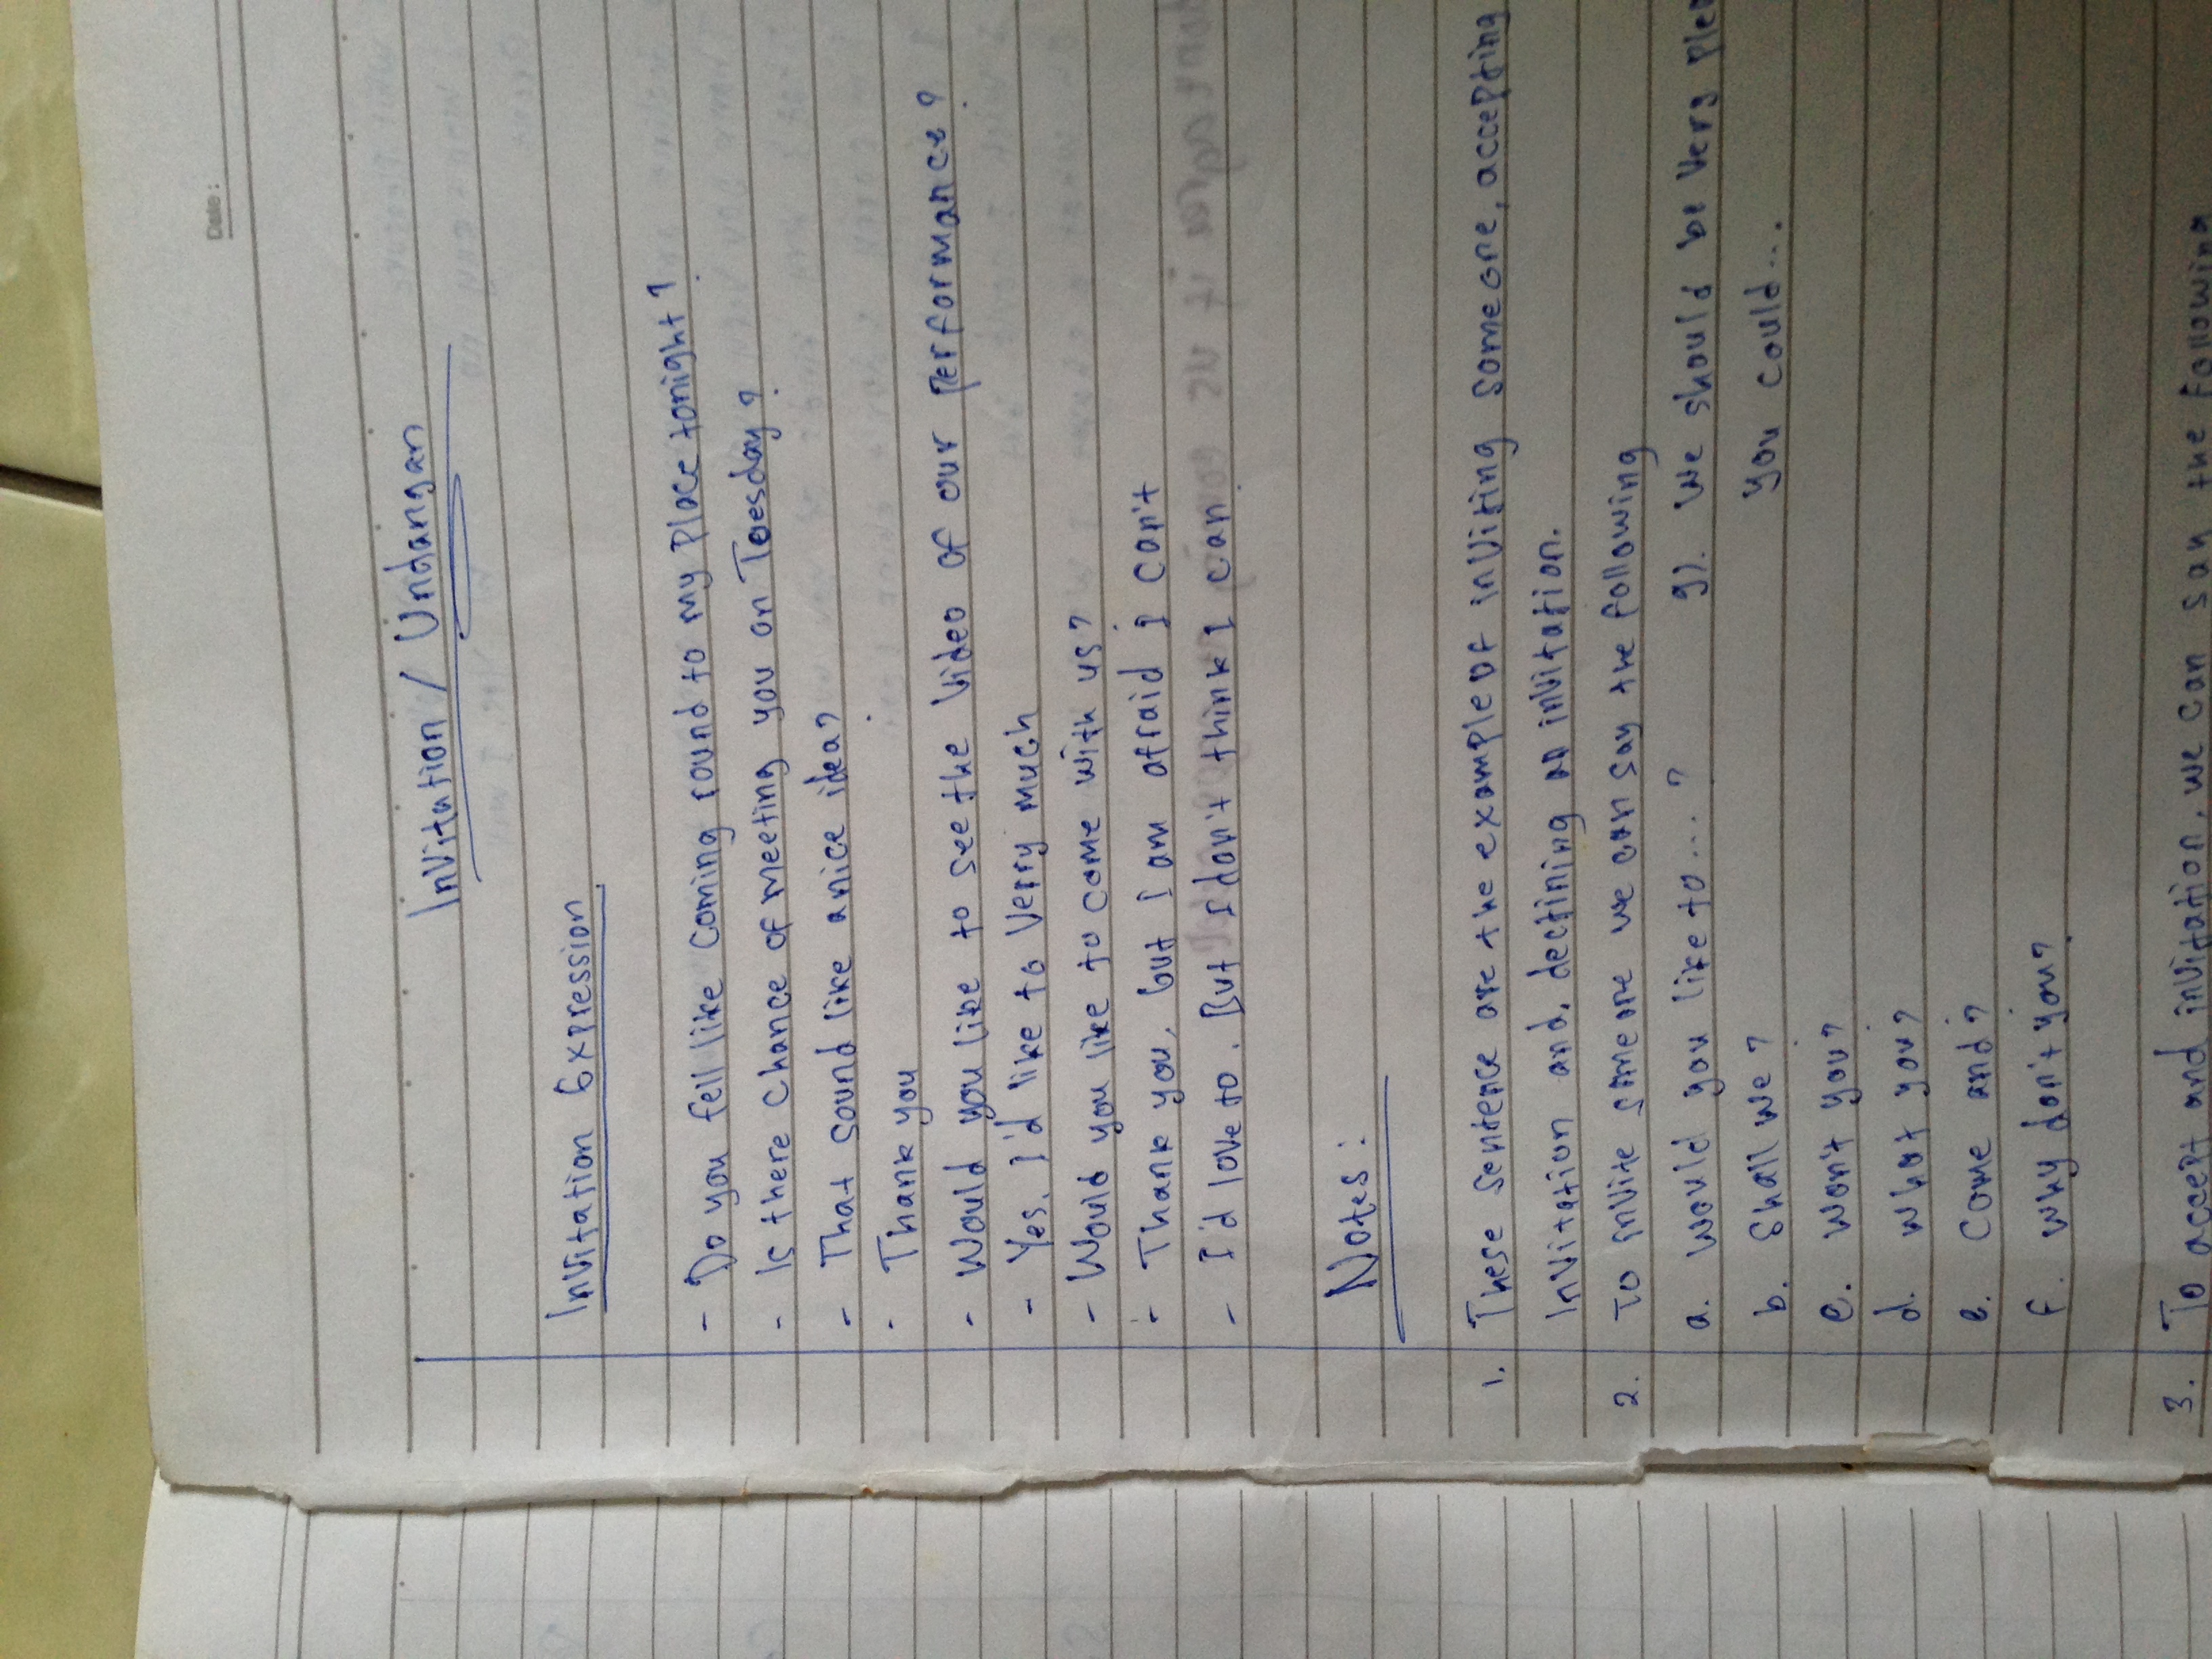 Date:
Invitation / Undangan
Invitation Expression
- Do you fell like coming round to my place tonight?
- Is there chance of meeting you on Toesday?
- That sound like a nice idea?
- Thank you
- Would you like to see the video of our performance?
- Yes. I'd like to Verry much
- Would you like to come with us?
- Thank you, but I am afraid I can't
- I'd love to. But I don't think I can
Notes:
1. These sentence are the example of inviting someone, accepting
Invitation and, declining an invitation.
2. To invite someone we can say the following
a. would you like to...? g). we should be very
b. Shall we? you could...
c. won't you?
d. what you?
e. come and?
f. why don't you?
3. To accept and invitation, we can say the following